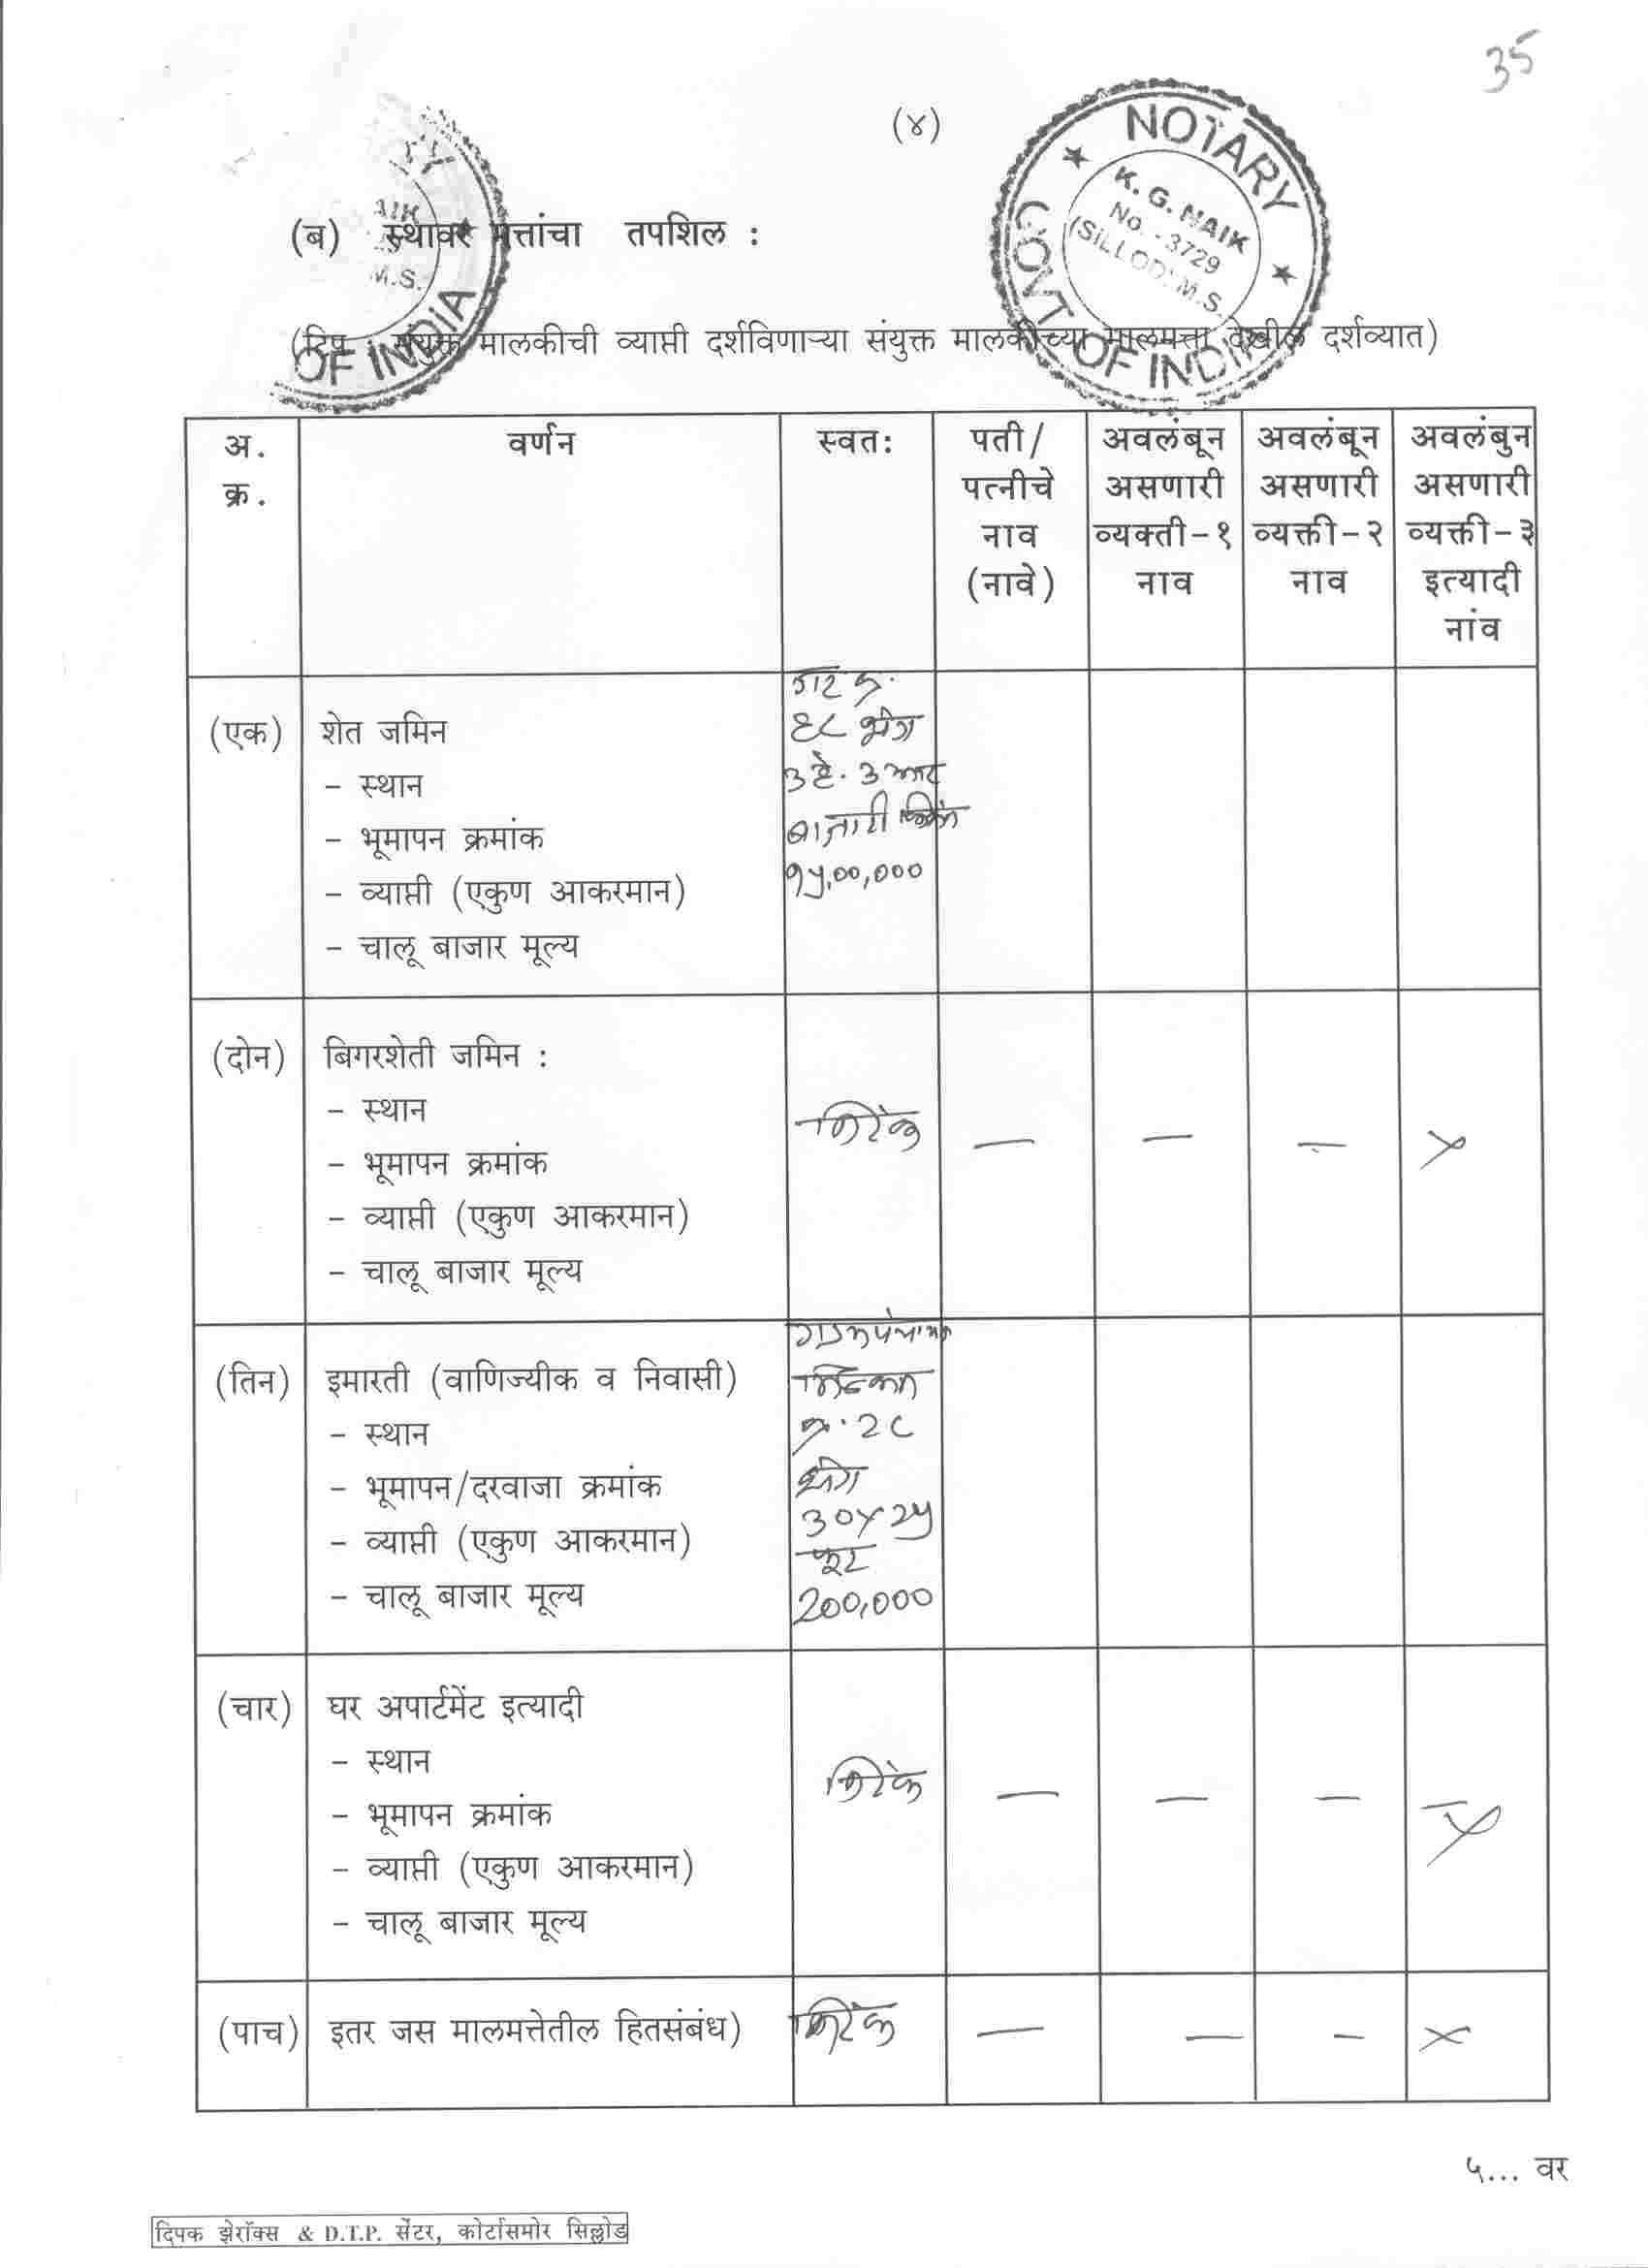 35
(४)
NOTARY
GOVT OF INDIA
K. G. NAIK
No. - 3729
(SILLOD) M.S.
AIK
M.S.
OF INDIA
(ब) स्थावर मत्तांचा तपशिल :
(टिप : संयुक्त मालकीची व्याप्ती दर्शविणाऱ्या संयुक्त मालकीच्या मालमत्ता देखील दर्शव्यात)
अ. क्र.
वर्णन
स्वत:
पती/ पत्नीचे नाव (नावे)
अवलंबून असणारी व्यक्ती-१ नाव
अवलंबून असणारी व्यक्ती-२ नाव
अवलंबुन असणारी व्यक्ती-३ इत्यादी नांव
(एक) शेत जमिन
- स्थान
- भूमापन क्रमांक
- व्याप्ती (एकुण आकरमान)
- चालू बाजार मूल्य
गट क्र.
६८ क्षेत्र
3 हे. 3 आर
बाजारी किंमत
१५,००,०००
(दोन) बिगरशेती जमिन :
- स्थान
- भूमापन क्रमांक
- व्याप्ती (एकुण आकरमान)
- चालू बाजार मूल्य
निरंक — — — ×
(तिन) इमारती (वाणिज्यीक व निवासी)
- स्थान
- भूमापन/दरवाजा क्रमांक
- व्याप्ती (एकुण आकरमान)
- चालू बाजार मूल्य
क्र. २८
३०×२५
फूट
200,000
(चार) घर अपार्टमेंट इत्यादी
- स्थान
- भूमापन क्रमांक
- व्याप्ती (एकुण आकरमान)
- चालू बाजार मूल्य
निरंक — — — ×
(पाच) इतर जस मालमत्तेतील हितसंबंध)
निरंक — — — ×
५... वर
दिपक झेरॉक्स & D.T.P. सेंटर, कोर्टासमोर सिल्लोड